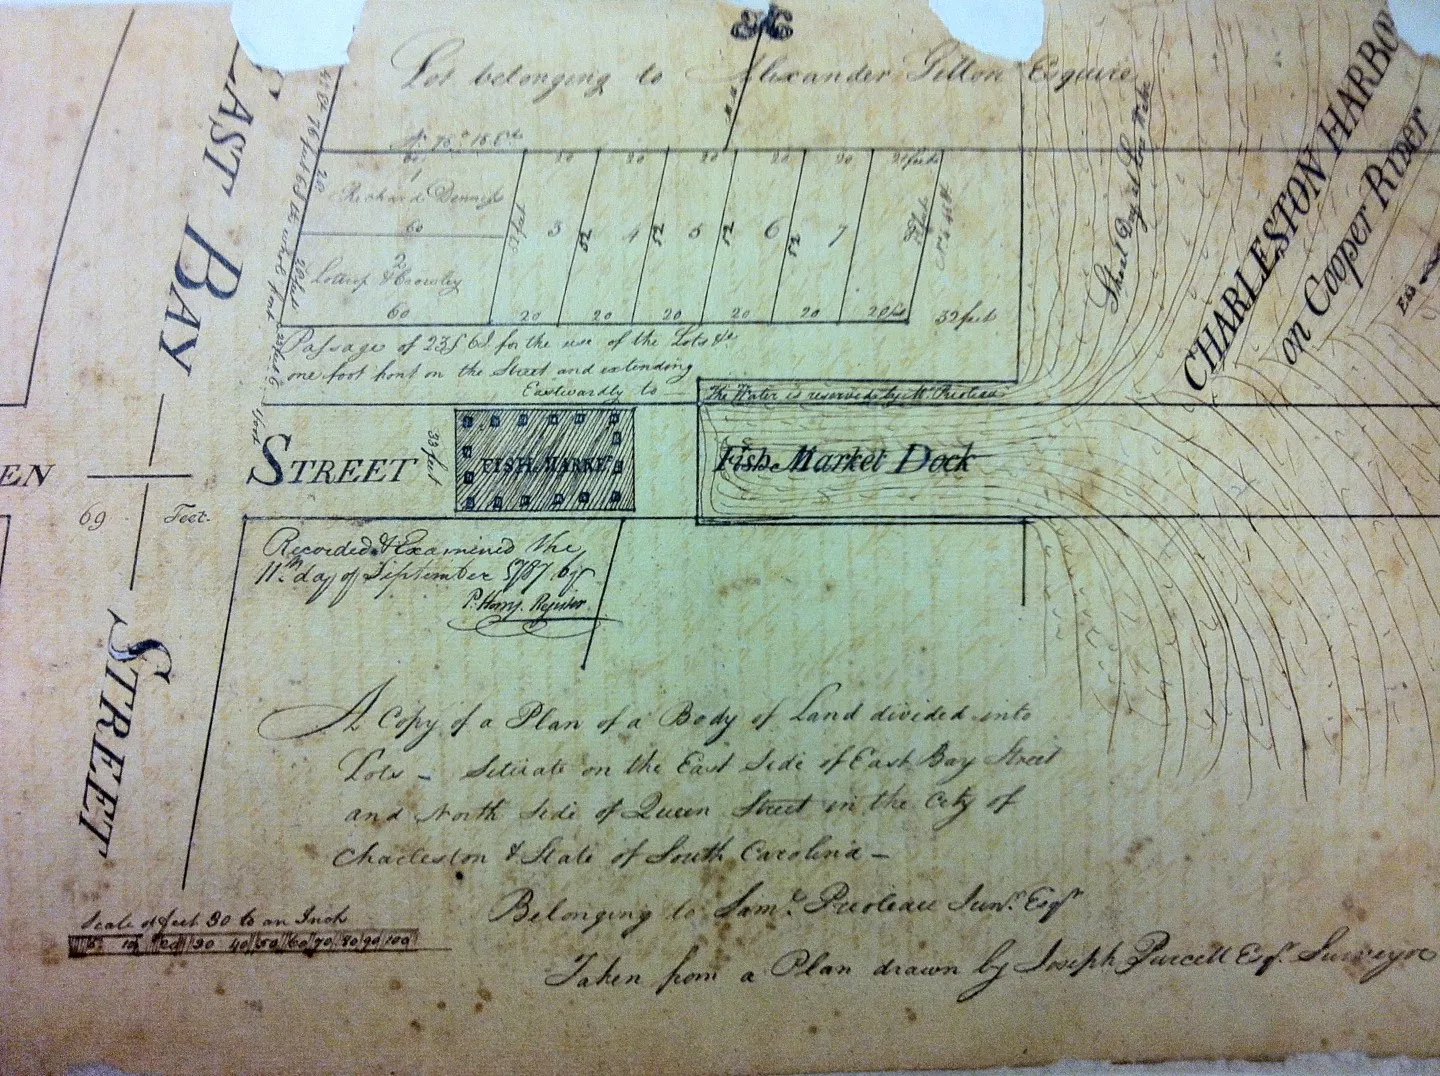 Lot belonging to Alexander Gillon Esquire
EAST BAY
STREET
CHARLESTON HARBO
on Cooper River
60 20 20 20 20 20 20 feet
1
Richard Dennis
60
2
Lothrop & Crowley
3 52 4 52 5 52 6 52 7
60 20 20 20 20 20 32 feet
Passage of 23f 6I for the use of the Lots &c
one foot front on the Street and extending
Eastwardly to
The Water is reserved by Mr. Prioleau
EN
STREET
33 feet
FISH MARKET
Fish Market Dock
69 Feet.
Recorded & Examined the
11th day of September 1787 by
P. Horry. Register
A Copy of a Plan of a Body of Land divided into
Lots - Situate on the East Side of East Bay Street
and North Side of Queen Street in the City of
Charleston & State of South Carolina -
Belonging to Saml. Prioleau Junr. Esqr
Taken from a Plan drawn by Joseph Purcell Esqr. Surveyor
Scale of feet 30 to an Inch
5 10 20 30 40 50 60 70 80 90 100